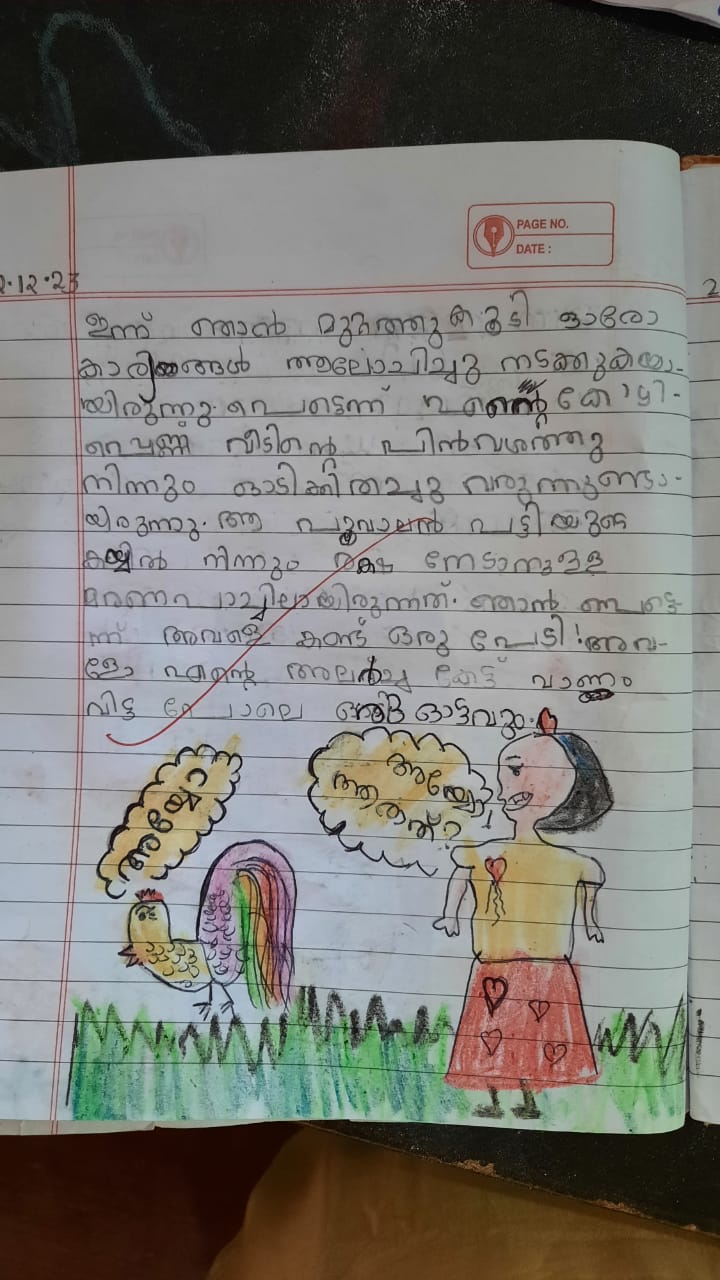 PAGE NO.
DATE :
2.12.23
2
ഇന്ന് ഞാൻ മുറ്റത്തുകൂടി ഓരോ
കാര്യങ്ങൾ ആലോചിച്ചു നടക്കുകയാ-
യിരുന്നു. പെട്ടെന്ന് എന്റെ കോഴി-
പ്പെണ്ണ് വീടിന്റെ പിൻവശത്തു
നിന്നും ഓടിക്കിതച്ചു വരുന്നുണ്ടാ-
യിരുന്നു. ആ പൂവാലൻ പട്ടിയുടെ
കയ്യിൽ നിന്നും രക്ഷ നേടാനുളള
മരണപാച്ചിലായിരുന്നത്. ഞാൻ പെട്ടെ-
ന്ന് അവളെ കണ്ട് ഒരു പേടി! അവ-
ളോ എന്റെ അലർച്ച കേട്ട് വാണം
വിട്ട പോലെ ഒരു ഓട്ടവും.
അയ്യോ
അയ്യോ!
ആരത്?